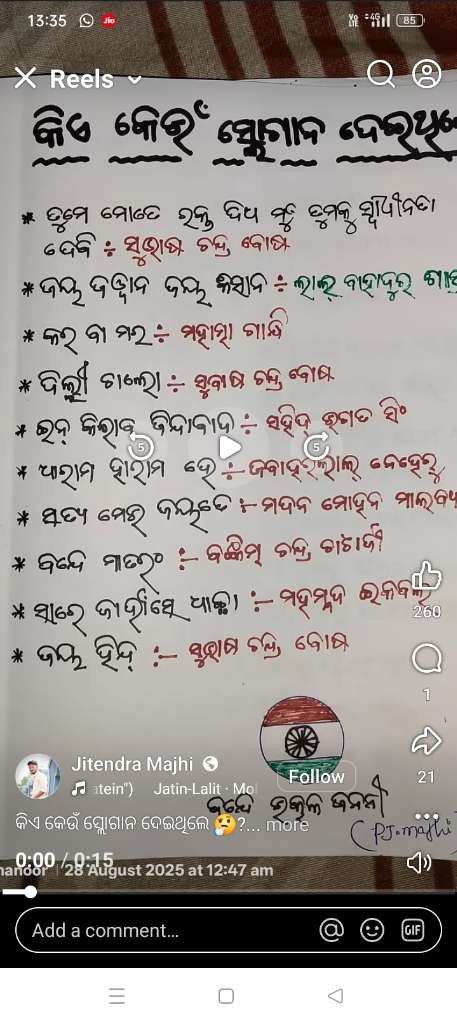 13:35
Jio
4G
85
Reels
କିଏ କେଉଁ ସ୍ଲୋଗାନ ଦେଇଥିଲେ
* ତୁମେ ମୋତେ ରକ୍ତ ଦିଅ ମୁଁ ତୁମକୁ ସ୍ୱାଧୀନତା
ଦେବି ÷ ସୁଭାଷ ଚନ୍ଦ୍ର ବୋଷ
* ଜୟ ଜୱାନ ଜୟ କିସାନ ÷ ଲାଲ୍ ବାହାଦୁର୍
* କର ବା ମର ÷ ମହାତ୍ମା ଗାନ୍ଧି
* ଦିଲ୍ଲୀ ଚାଲୋ ÷ ସୁବାଷ ଚନ୍ଦ୍ର ବୋଷ
* ଇନ୍ କିଲାବ ଜିନ୍ଦାବାଦ ÷ ସହିଦ୍ ଭଗତ ସିଂ
* ଆରାମ ହାରାମ ହେ ÷ ଜବାହରଲାଲ୍ ନେହେରୁ
* ସତ୍ୟ ମେବ ଜୟତେ :- ମଦନ ମୋହନ ମାଲବ୍ୟ
* ବନ୍ଦେ ମାତରଂ :- ବଙ୍କିମ୍ ଚନ୍ଦ୍ର ଚାଟାର୍ଜୀ
* ସାରେ ଜାହାଁସେ ଆଚ୍ଛା :- ମହମ୍ମଦ ଇକବାଲ
* ଜୟ ହିନ୍ଦ୍ :- ସୁଭାଷ ଚନ୍ଦ୍ର ବୋଷ
5
5
260
1
21
Jitendra Majhi
Follow
atein") Jatin-Lalit · Mol
ବନ୍ଦେ ଉତ୍କଳ ଜନନୀ
(P.J.majhi)
କିଏ କେଉଁ ସ୍ଲୋଗାନ ଦେଇଥିଲେ 🤔?... more
0:00 / 0:15
28 August 2025 at 12:47 am
Add a comment...
GIF